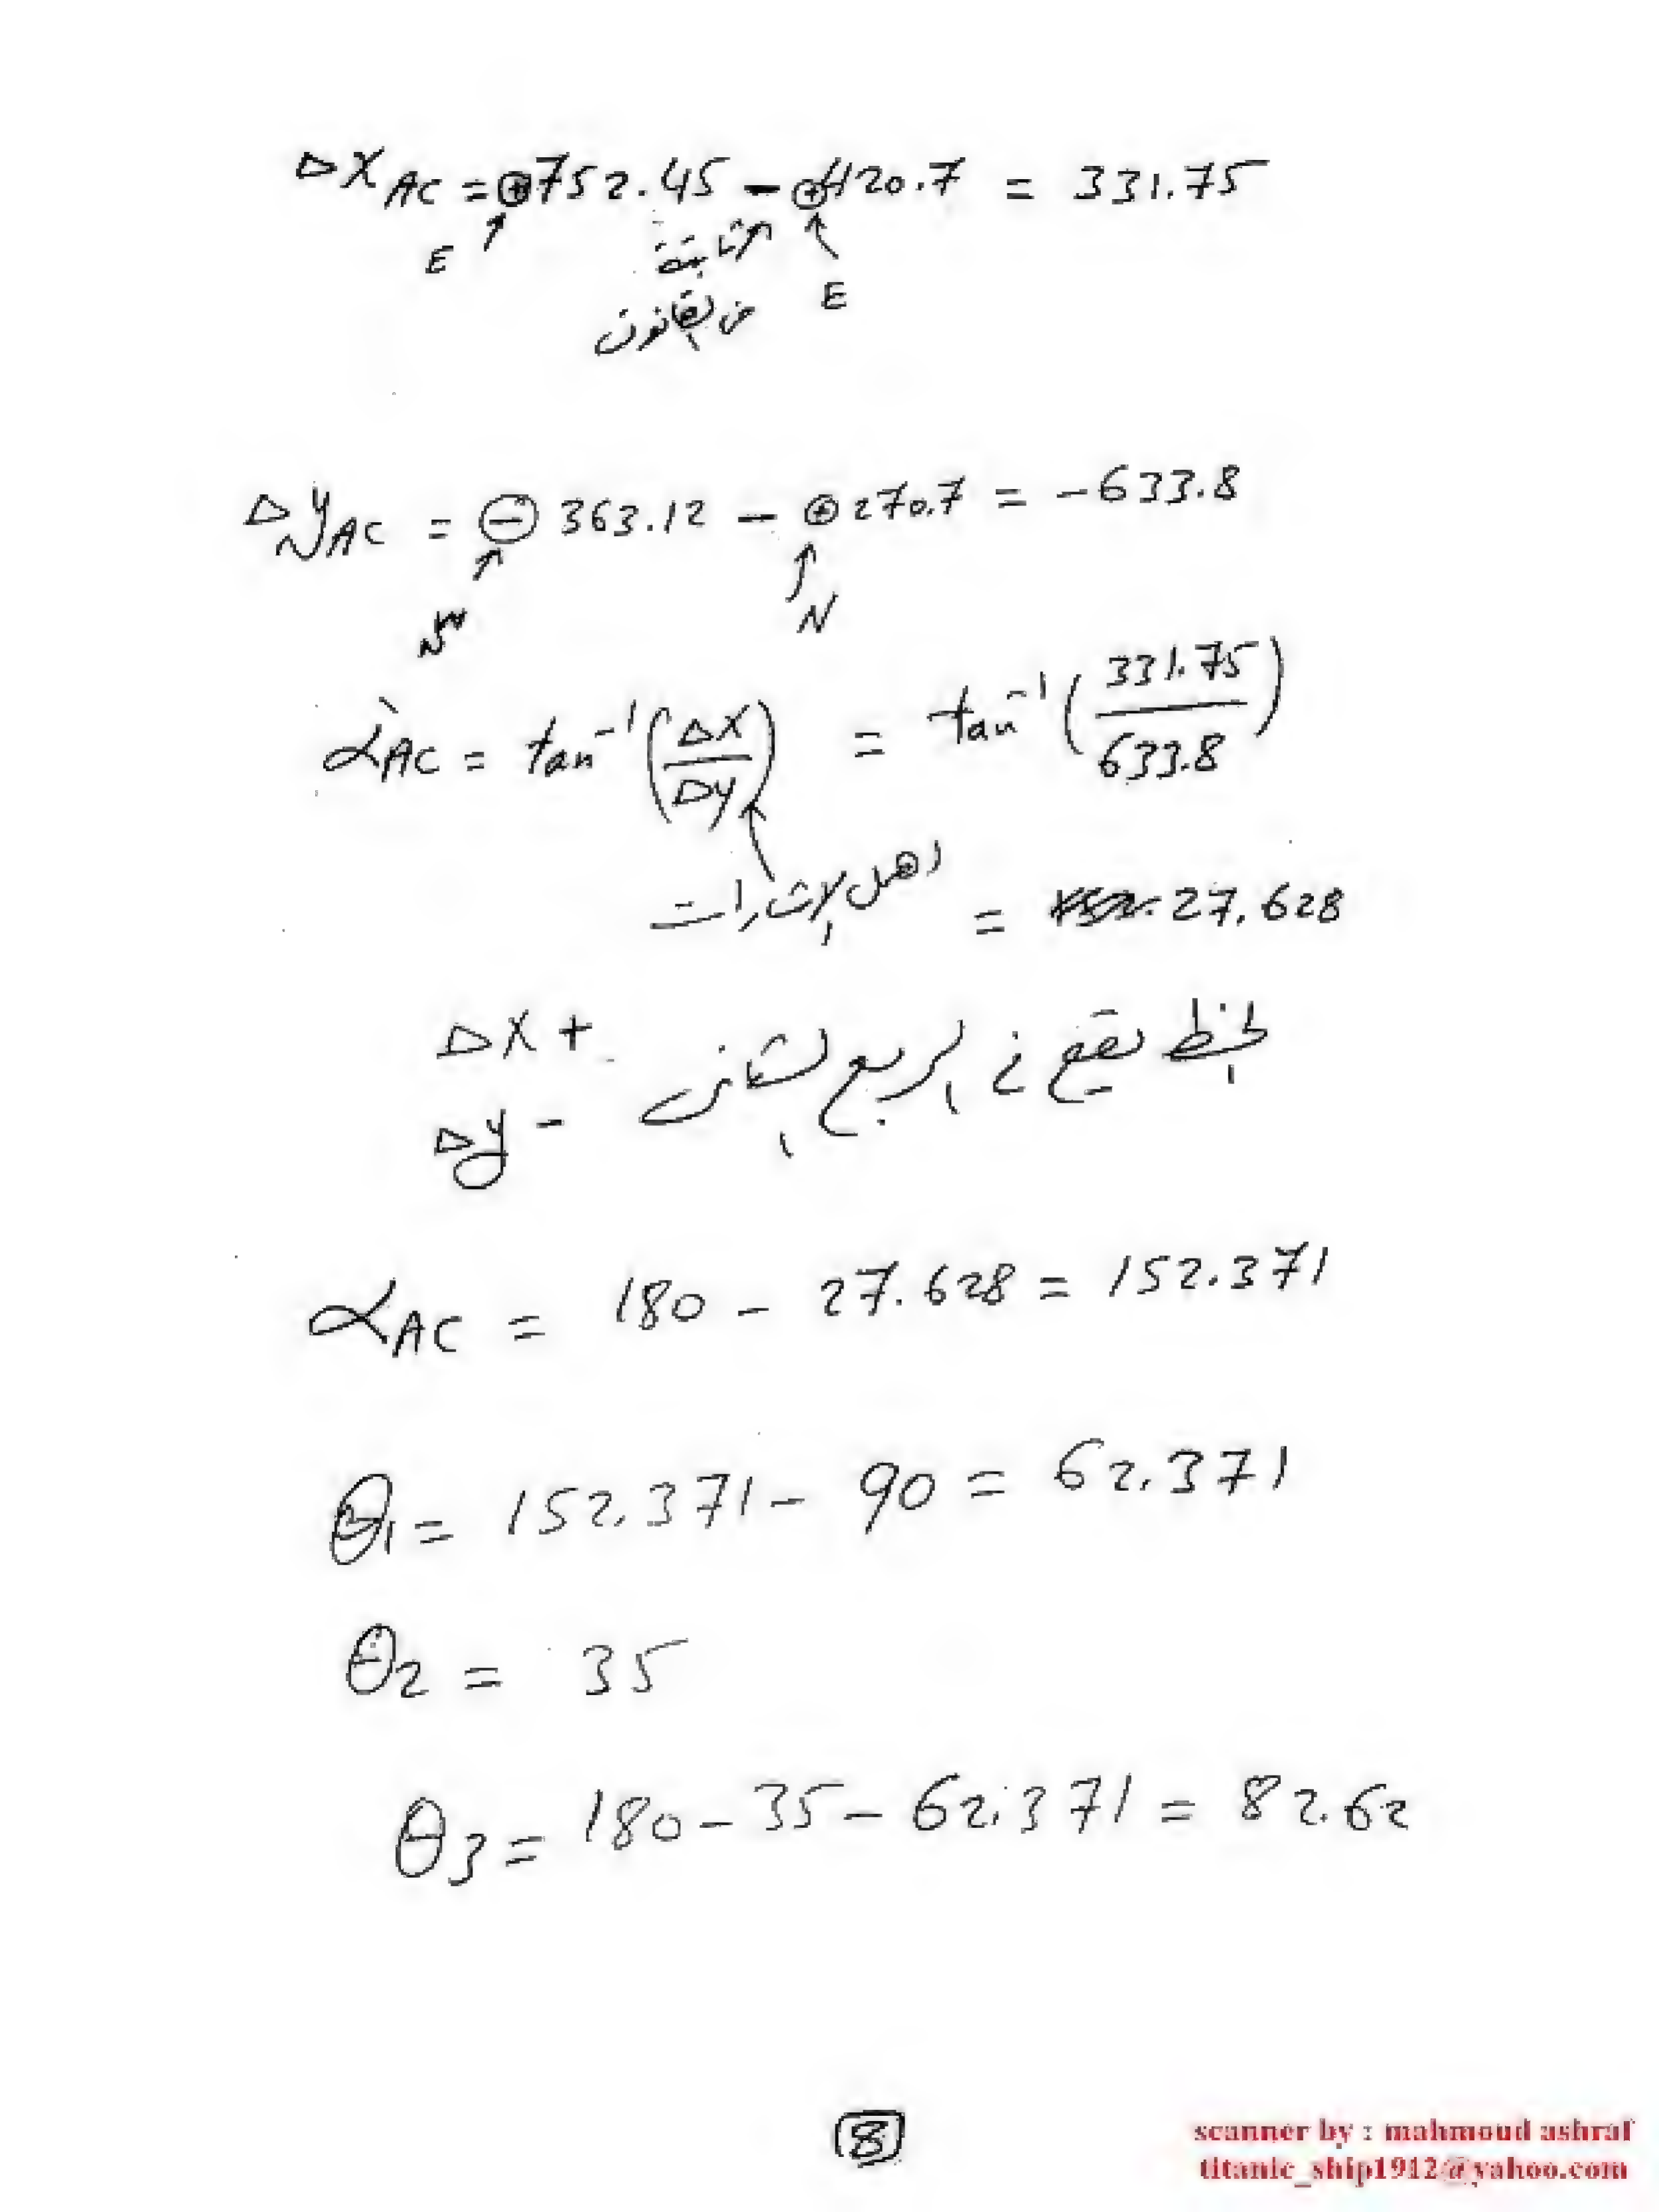 ΔX AC = ⊕752.45 - ⊕420.7 = 331.75
E ثابتة E
من القانون
Δy AC = ⊖ 363.12 - ⊕270.7 = -633.8
N
α`AC = tan⁻¹(ΔX/Δy) = tan⁻¹(331.75/633.8)
اهمل الاشارات = 27.628
ΔX + الخط يقع في الربع الثاني
Δy -
αAC = 180 - 27.628 = 152.371
θ1 = 152.371 - 90 = 62.371
θ2 = 35
θ3 = 180 - 35 - 62.371 = 82.62
8
scanner by : mahmoud ashraf
titanic_ship1912@yahoo.com